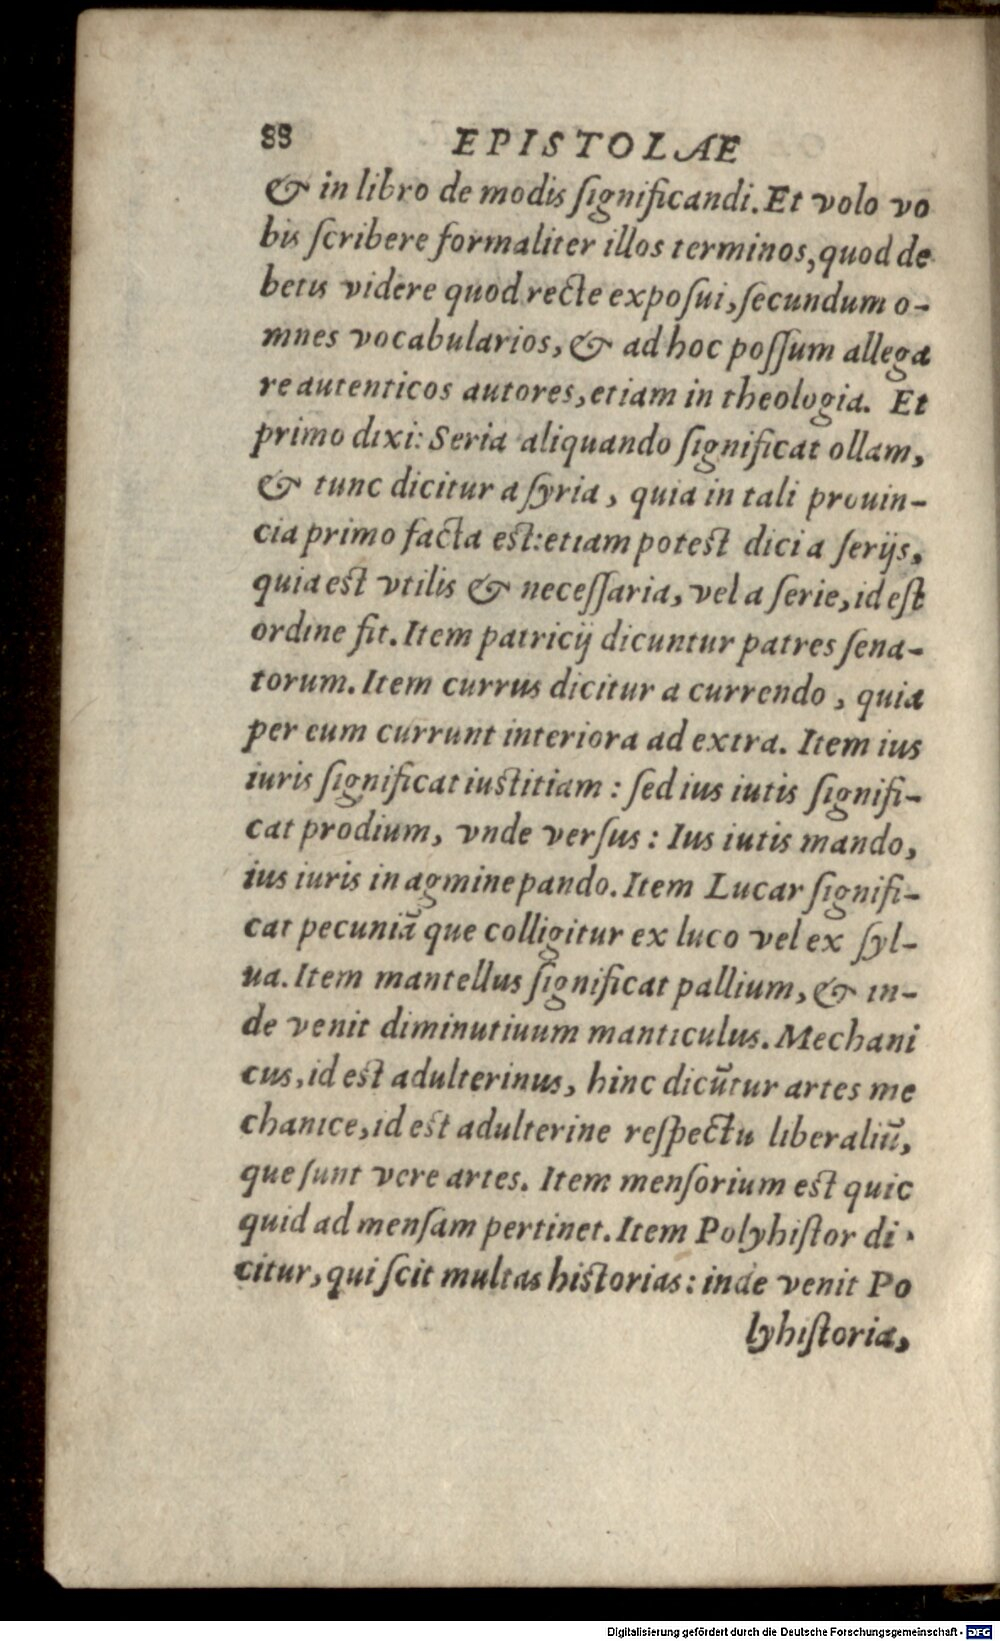 88 EPISTOLAE
& in libro de modis ſignificandi. Et volo vo
bis ſcribere formaliter illos terminos, quod de
betis videre quod recte expoſui, ſecundum o-
mnes vocabularios, & ad hoc poſſum allega
re autenticos autores, etiam in theologia. Et
primo dixi: Seria aliquando ſignificat ollam,
& tunc dicitur a ſyria, quia in tali prouin-
cia primo facta est: etiam potest dici a ſerijs,
quia est vtilis & neceſſaria, vel a ſerie, id eſt
ordine fit. Item patricij dicuntur patres ſena-
torum. Item currus dicitur a currendo, quia
per eum currunt interiora ad extra. Item ius
iuris ſignificat iustitiam: ſed ius iutis ſignifi-
cat prodium, vnde verſus: Ius iutis mando,
ius iuris in agmine pando. Item Lucar ſignifi-
cat pecuniã que colligitur ex luco vel ex ſyl-
ua. Item mantellus ſignificat pallium, & in-
de venit diminutiuum manticulus. Mechani
cus, id est adulterinus, hinc dicũtur artes me
chanice, id est adulterine reſpectu liberaliũ,
que ſunt vere artes. Item menſorium est quic
quid ad menſam pertinet. Item Polyhiſtor di-
citur, qui ſcit multas historias: inde venit Po
lyhiſtoria,
Digitalisierung gefördert durch die Deutsche Forschungsgemeinschaft - DFG